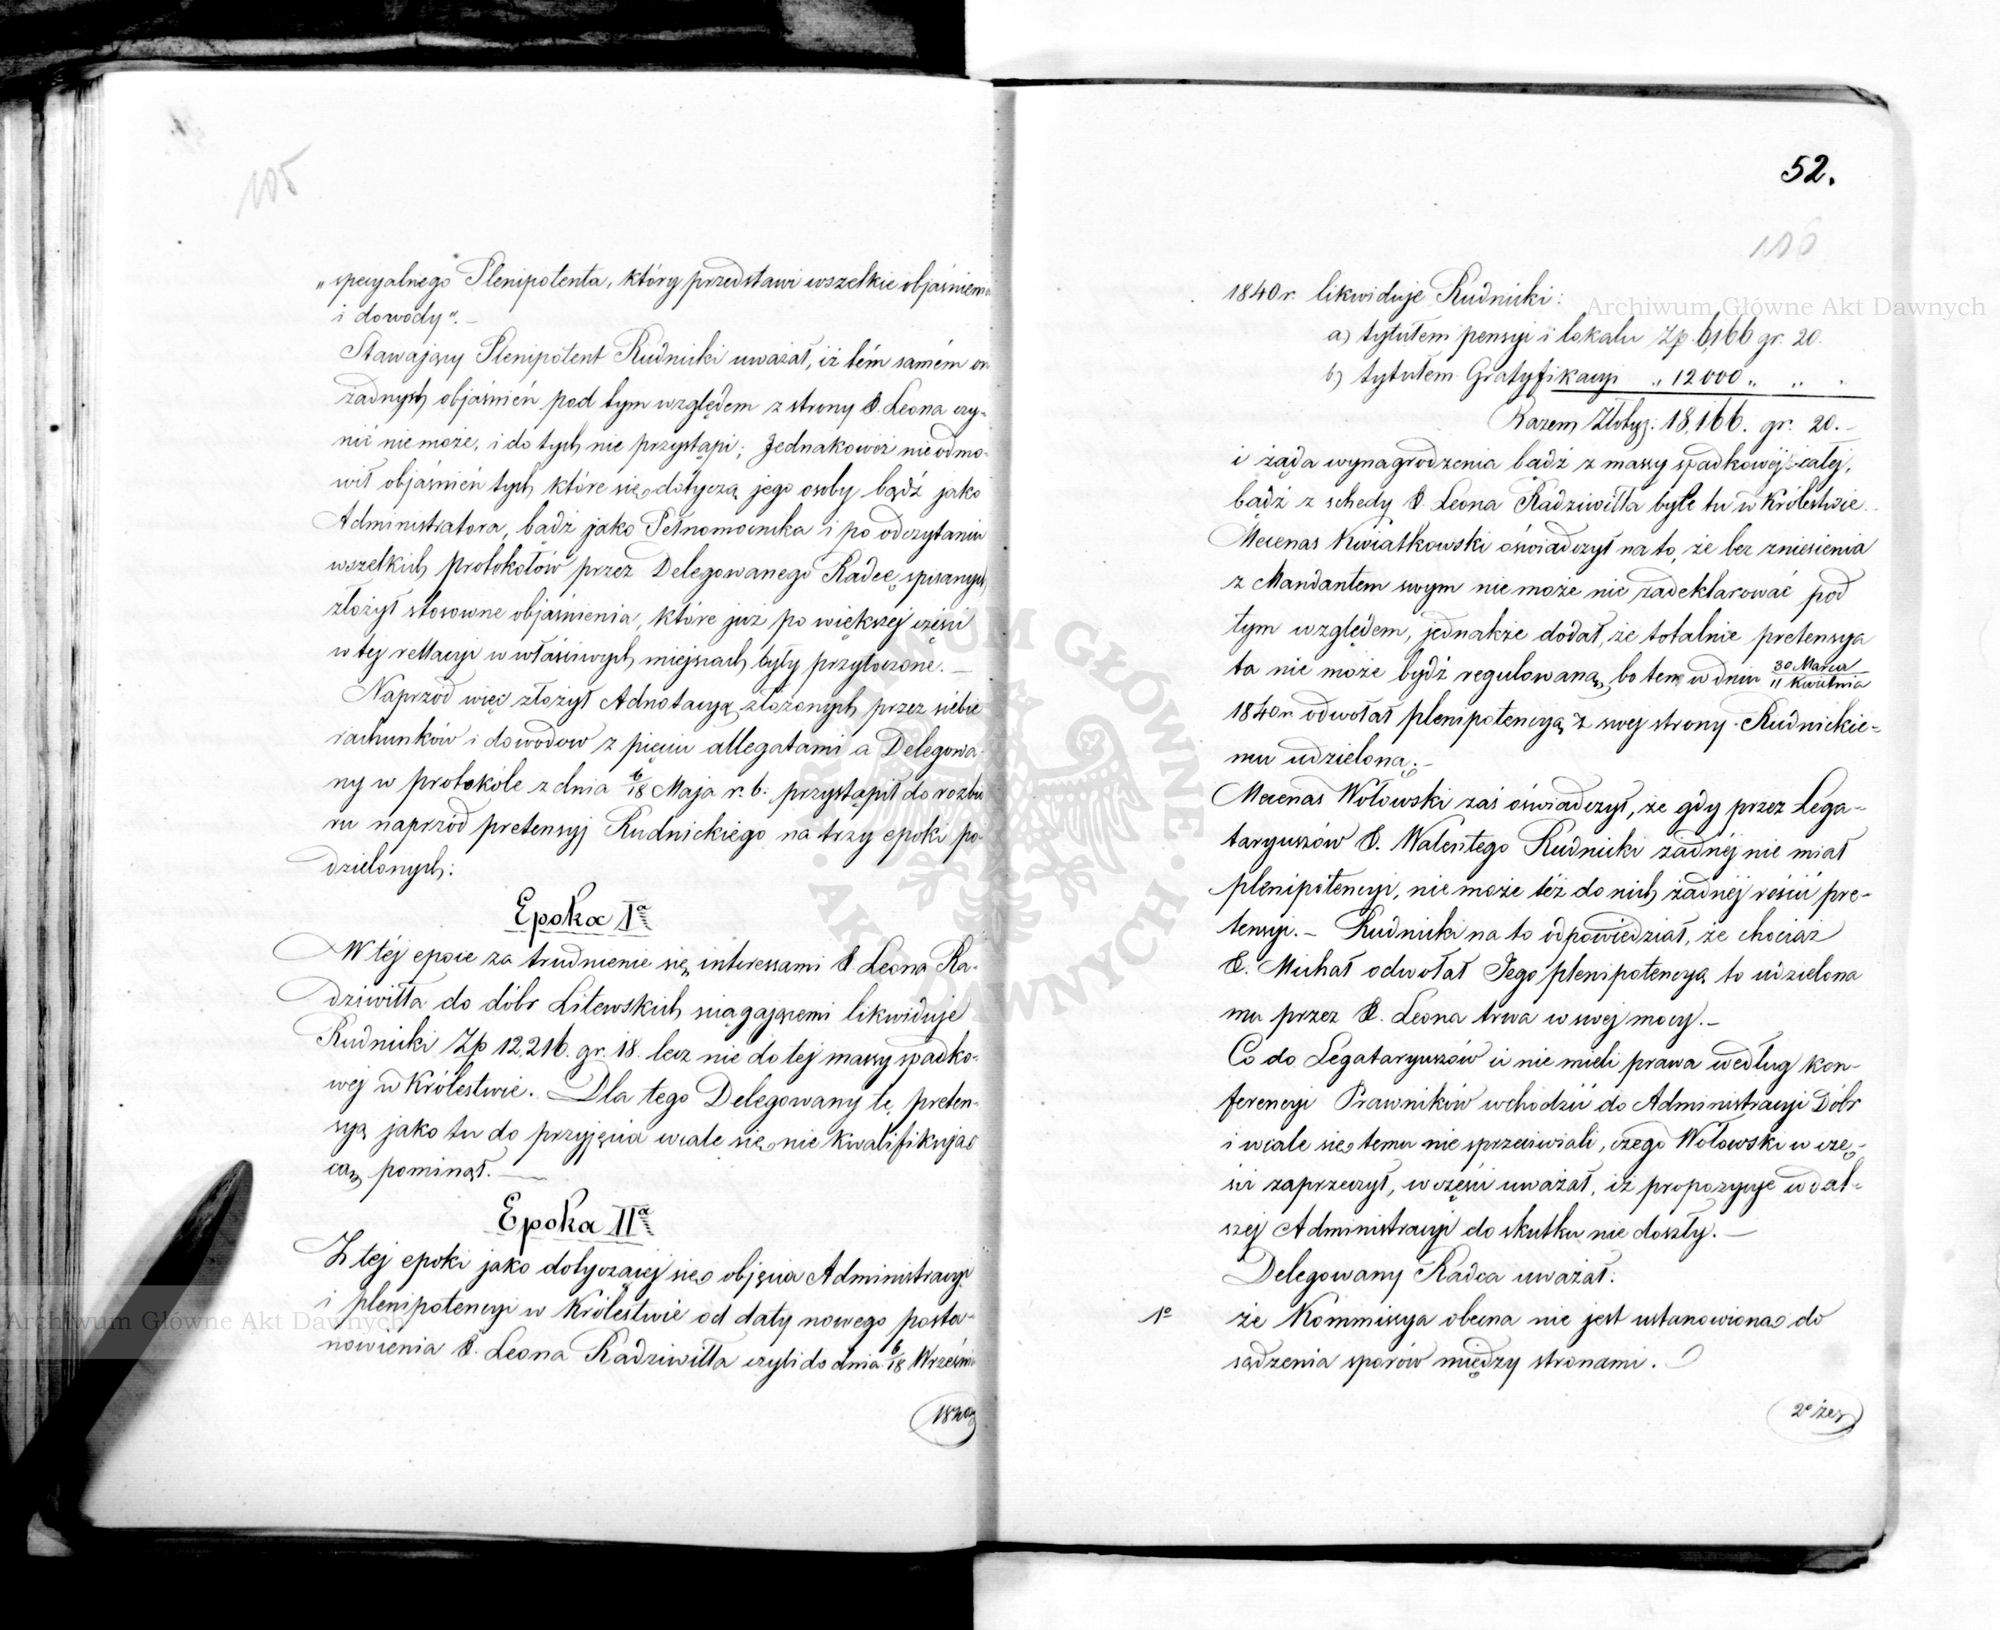 105
„specyalnego Plenipotenta, który przedstawi wszelkie objaśnienia
i dowody”. –
Stawający Plenipotent Rudnicki uważał, iż tém samém on
żadnych objaśnień pod tym względem z strony X. Leona czy-
nić nie może, i do tych nie przystąpi; Jednakowoż nie odmó-
wił objaśnień tych które się dotyczą jego osoby bądź jako
Administratora, bądź jako Pełnomocnika i po odczytaniu
wszelkich protokołów przez Delegowanego Radcę spisanych
złożył stosowne objaśnienia, które już po większej części
w tej rellacyi w właściwych miejscach były przytoczone. –
Naprzód więc złożył Adnotacyą złożonych przez siebie
rachunków i dowodow z pięciu allegatami a Delegowa-
ny w protokóle z dnia 6/18 Maja r. b. przystąpił do rozbio-
ru naprzód pretensyj Rudnickiego na trzy epoki po-
dzielonych:
Epoka Iª
W téj epoce za trudnienie się interessami X. Leona Ra-
dziwiłła do dóbr Litewskich ściągającemi likwiduje
Rudnicki Zp 12,216. gr. 18. lecz nie do tej massy spadko-
wej w Królestwie. Dla tego Delegowany tę preten-
syą jako tu do przyjęcia wcale się nie kwalifikując
cą, pominął. –
Epoka IIª
Z tej epoki jako dotyczącej się objęcia Administracyi
i plenipotencyi w Królestwie od daty nowego posta-
nowienia X. Leona Radziwiłła czyli do dnia 6/18 Wrześni
1840
52.
106
1840 r. likwiduje Rudnicki:
a) tytułem pensyi i lokalu Zp. 6,166 gr. 20.
b) tytułem Gratyfikacyi „ 12000 „ „ „
Razem Złotych: 18,166. gr. 20. –
i żąda wynagrodzenia bądź z massy spadkowéj całej,
bądź z schedy X. Leona Radziwiłła byle tu w Królestwie.
Mecenas Kwiatkowski oświadczył na to, że bez zniesienia
z Mandantem swym nie może nic zadeklarować pod
tym względem, jednakże dodał, że totalnie pretensya
ta nie może bydź regulowaną, bo ten w dniu 30 Marca / 11 Kwietnia
1840 r. odwołał plenipotencyą z swej strony Rudnickie-
mu udzieloną. –
Mecenas Wołowski zaś oświadczył, że gdy przez Lega-
taryuszów X. Walentego Rudnicki żadnéj nie miał
plenipotencyi, nie może też do nich żadnéj rościć pre-
tensyi. – Rudnicki na to odpowiedział, że chociaż
X. Michał odwołał Jego plenipotencyą, to udzielona
mu przez X. Leona trwa w swej mocy. –
Co do Legataryuszów ci nie mieli prawa według kon-
ferencyi Prawników wchodzić do Administracyi Dóbr
i wcale się temu nie sprzeciwiali, czego Wołowski w czę-
ści zaprzeczył, w części uważał, iż propozycye w dal-
szej Administracyi do skutku nie doszły. –
Delegowany Radca uważał:
1º że Kommissya obecna nie jest ustanowiona do
sądzenia sporów między stronami.
2º że
Archiwum Główne Akt Dawnych
Archiwum Główne Akt Dawnych
ARCHIWUM GŁÓWNE · AKT DAWNYCH ·